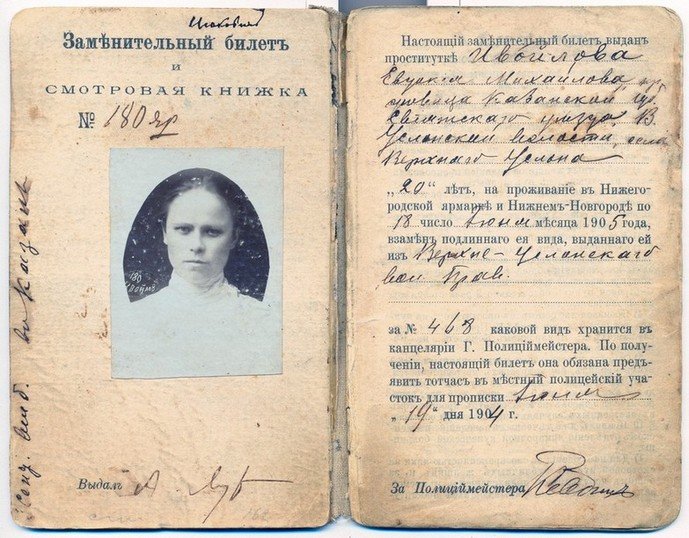 Замѣнительный билетъ
и
СМОТРОВАЯ КНИЖКА
№ 180 яр
Выдалъ
въ Казань
Настоящій замѣнительный билетъ выданъ
проституткѣ Ивойлова
Евдокія Михайлова, кр
Казанской губ.
Свіяжскаго уѣзда, В.
Услонской волости, села
Верхняго Услона
„20“ лѣтъ, на проживаніе въ Нижего-
родской ярмаркѣ и Нижнемъ-Новгородѣ по
18 число Іюня мѣсяца 1905 года,
взамѣнъ подлиннаго ея вида, выданнаго ей
изъ Верхне-Услонскаго
вол. Прав.
за № 468 каковой видъ хранится въ
канцеляріи Г. Полиціймейстера. По полу-
ченіи, настоящій билетъ она обязана предъ-
явить тотчасъ въ мѣстный полицейскій уча-
стокъ для прописки Іюня
„19“ дня 1904 г.
За Полиціймейстера